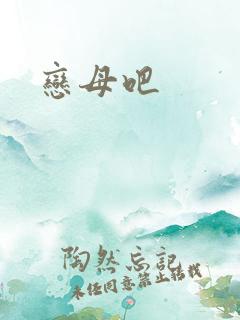 戀母吧
陶然忘記
未經同意禁止轉載